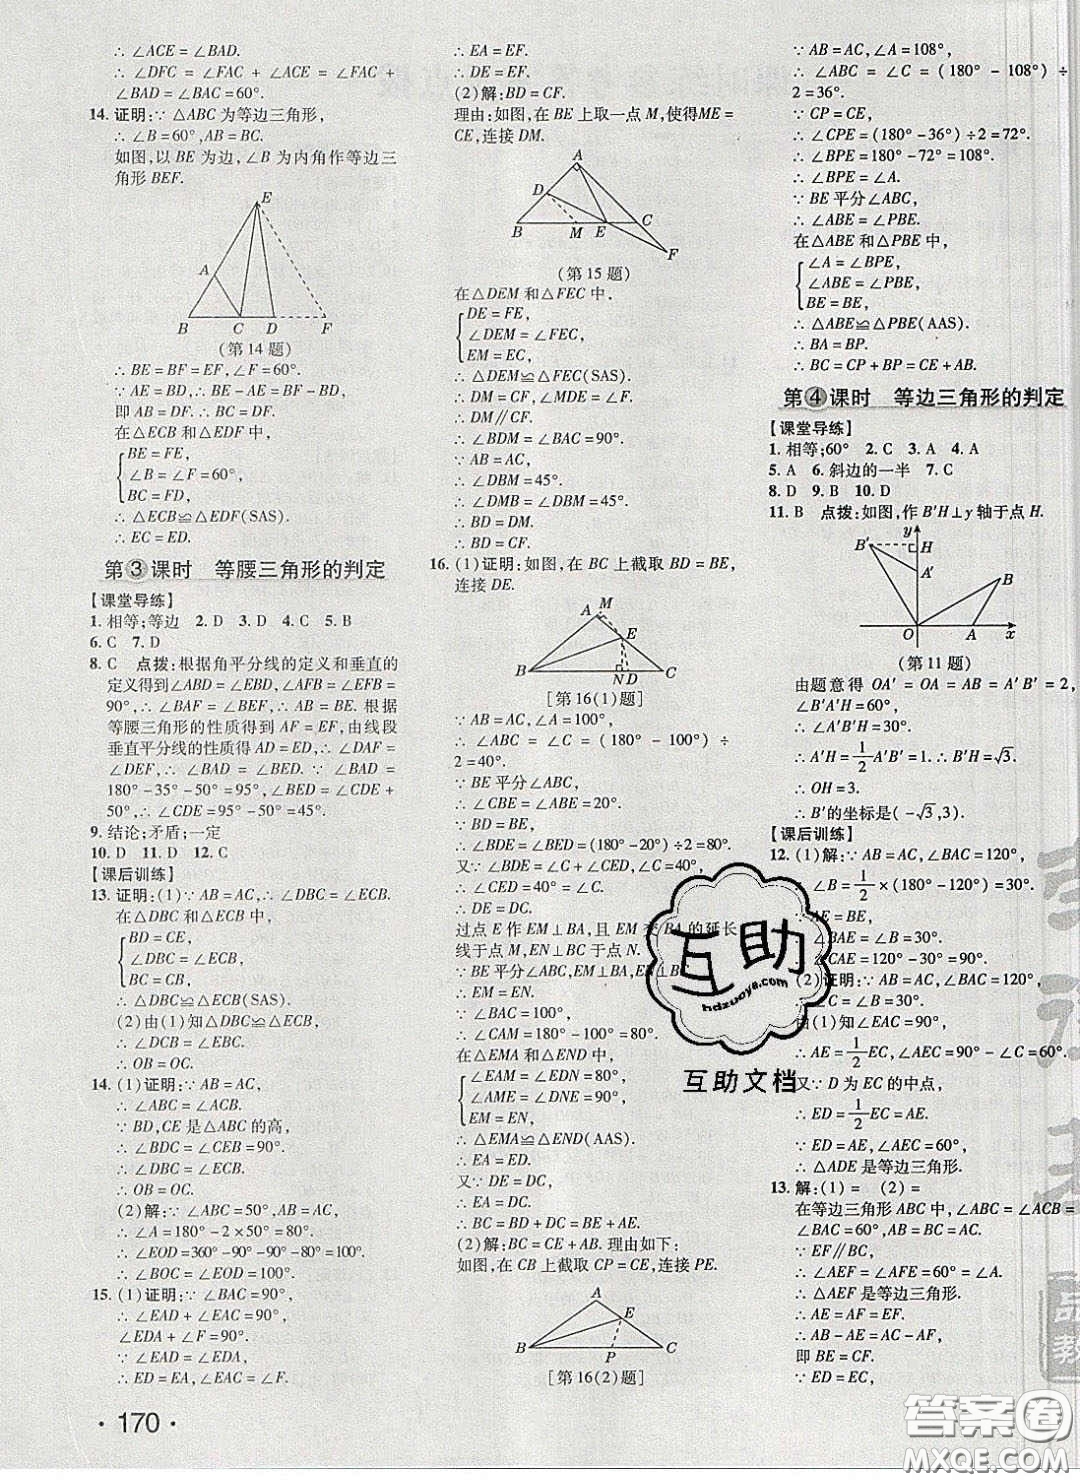 ∴ ∠ACE = ∠BAD.
∴ ∠DFC = ∠FAC + ∠ACE = ∠FAC +
∠BAD = ∠BAC = 60°.
14. 证明:∵ △ABC 为等边三角形,
∴ ∠B = 60°,AB = BC.
如图,以 BE 为边,∠B 为内角作等边三
角形 BEF.
E
A
B C D F
(第 14 题)
∴ BE = BF = EF,∠F = 60°.
∵ AE = BD,∴ BE - AE = BF - BD,
即 AB = DF.∴ BC = DF.
在△ECB 和△EDF 中,
BE = FE,
∠B = ∠F = 60°,
BC = FD,
∴ △ECB ≌ △EDF(SAS).
∴ EC = ED.
第③课时 等腰三角形的判定
【课堂导练】
1. 相等;等边 2. D 3. D 4. C 5. B
6. C 7. D
8. C 点拨:根据角平分线的定义和垂直的
定义得到∠ABD = ∠EBD,∠AFB = ∠EFB =
90°,∴ ∠BAF = ∠BEF,∴ AB = BE. 根据
等腰三角形的性质得到 AF = EF,由线段
垂直平分线的性质得 AD = ED,∴ ∠DAF =
∠DEF,∴ ∠BAD = ∠BED. ∵ ∠BAD =
180° - 35° - 50° = 95°,∠BED = ∠CDE +
50°,∴ ∠CDE = 95° - 50° = 45°.
9. 结论;矛盾;一定
10. D 11. D 12. C
【课后训练】
13. 证明:(1)∵ AB = AC,∴ ∠DBC = ∠ECB.
在△DBC 和△ECB 中,
BD = CE,
∠DBC = ∠ECB,
BC = CB,
∴ △DBC ≌ △ECB(SAS).
(2)由(1)知△DBC ≌ △ECB,
∴ ∠DCB = ∠EBC.
∴ OB = OC.
14. (1)证明:∵ AB = AC,
∴ ∠ABC = ∠ACB.
∵ BD,CE 是△ABC 的高,
∴ ∠BDC = ∠CEB = 90°.
∴ ∠DBC = ∠ECB.
∴ OB = OC.
(2)解:∵ ∠ABC = 50°,AB = AC,
∴ ∠A = 180° - 2×50° = 80°.
∴ ∠EOD = 360° - 90° - 90° - 80° = 100°.
∴ ∠BOC = ∠EOD = 100°.
15. (1)证明:∵ ∠BAC = 90°,
∴ ∠EAD + ∠EAC = 90°,
∠EDA + ∠F = 90°.
∵ ∠EAD = ∠EDA,
∴ ED = EA,∠EAC = ∠F.
· 170 ·
∴ EA = EF.
∴ DE = EF.
(2)解:BD = CF.
理由:如图,在 BE 上取一点 M,使得ME =
CE,连接 DM.
A
D
B M E C
F
(第 15 题)
在△DEM 和△FEC 中,
DE = FE,
∠DEM = ∠FEC,
EM = EC,
∴ △DEM ≌ △FEC(SAS).
∴ DM = CF,∠MDE = ∠F.
∴ DM∥CF.
∴ ∠BDM = ∠BAC = 90°.
∵ AB = AC,
∴ ∠DBM = 45°.
∴ ∠DMB = ∠DBM = 45°.
∴ BD = DM.
∴ BD = CF.
16. (1)证明:如图,在 BC 上截取 BD = BE,
连接 DE.
M
A
E
B N D C
[第 16(1)题]
∵ AB = AC,∠A = 100°,
∴ ∠ABC = ∠C = (180° - 100°) ÷
2 = 40°.
∵ BE 平分∠ABC,
∴ ∠CBE = ∠ABE = 20°.
∵ BD = BE,
∴ ∠BDE = ∠BED = (180° - 20°) ÷ 2 = 80°.
又∵ ∠BDE = ∠C + ∠CED,∠C = 40°,
∴ ∠CED = 40° = ∠C.
∴ DE = DC.
过点 E 作 EM⊥BA,且 EM 交 BA 的延长
线于点 M,EN⊥BC 于点 N.
∵ BE 平分∠ABC,EM⊥BA,EN⊥BC,
∴ EM = EN.
∵ ∠BAC = 100°,
∴ ∠CAM = 180° - 100° = 80° = ∠BDE.
在△EMA 和△END 中,
∠EAM = ∠EDN = 80°,
∠AME = ∠DNE = 90°,
EM = EN,
∴ △EMA ≌ △END(AAS).
∴ EA = ED.
又∵ DE = DC,
∴ EA = DC.
∴ BC = BD + DC = BE + AE.
(2)解:BC = CE + AB. 理由如下:
如图,在 CB 上截取 CP = CE,连接 PE.
A
E
B P C
[第 16(2)题]
∵ AB = AC,∠A = 108°,
∴ ∠ABC = ∠C = (180° - 108°) ÷
2 = 36°.
∵ CP = CE,
∴ ∠CPE = (180° - 36°) ÷ 2 = 72°.
∴ ∠BPE = 180° - 72° = 108°.
∴ ∠BPE = ∠A.
∵ BE 平分∠ABC,
∴ ∠ABE = ∠PBE.
在△ABE 和△PBE 中,
∠A = ∠BPE,
∠ABE = ∠PBE,
BE = BE,
∴ △ABE ≌ △PBE(AAS).
∴ BA = BP.
∴ BC = CP + BP = CE + AB.
第④课时 等边三角形的判定
【课堂导练】
1. 相等;60° 2. C 3. A 4. A
5. A 6. 斜边的一半 7. C
8. D 9. B 10. D
11. B 点拨:如图,作 B′H⊥y 轴于点 H.
y
B′ H
A′
B
O A x
(第 11 题)
由题意得 OA′ = OA = AB = A′B′ = 2,
∠B′A′H = 60°,
∴ ∠A′B′H = 30°.
∴ A′H = 1/2 A′B′ = 1.∴ B′H = √3.
∴ OH = 3.
∴ B′的坐标是( -√3,3).
【课后训练】
12. (1)解:∵ AB = AC,∠BAC = 120°,
∴ ∠B = 1/2 × (180° - 120°) = 30°.
∠BAE = ∠B = 30°.
∠CAE = 120° - 30° = 90°.
(2)证明:∵ AB = AC,∠BAC = 120°,
∴ ∠C = ∠B = 30°.
由(1)知∠EAC = 90°,
∴ AE = 1/2 EC,∠AEC = 90° - ∠C = 60°.
又∵ D 为 EC 的中点,
∴ ED = 1/2 EC = AE.
∵ ED = AE,∠AEC = 60°,
∴ △ADE 是等边三角形.
13. 解:(1) = (2) =
在等边三角形 ABC 中,∠ABC = ∠ACB =
∠BAC = 60°,AB = BC = AC.
∵ EF∥BC,
∴ ∠AEF = ∠AFE = 60° = ∠BAC.
∴ △AEF 是等边三角形.
∴ AE = AF = EF.
∴ AB - AE = AC - AF,
即 BE = CF.
∵ ED = EC,
互助
hdzuoye.com
互助文档
品
教
答案圈
MXQE.COM